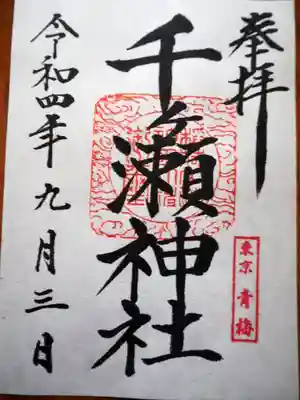 奉拝
東京 青梅
千ヶ瀬神社
令和四年九月三日